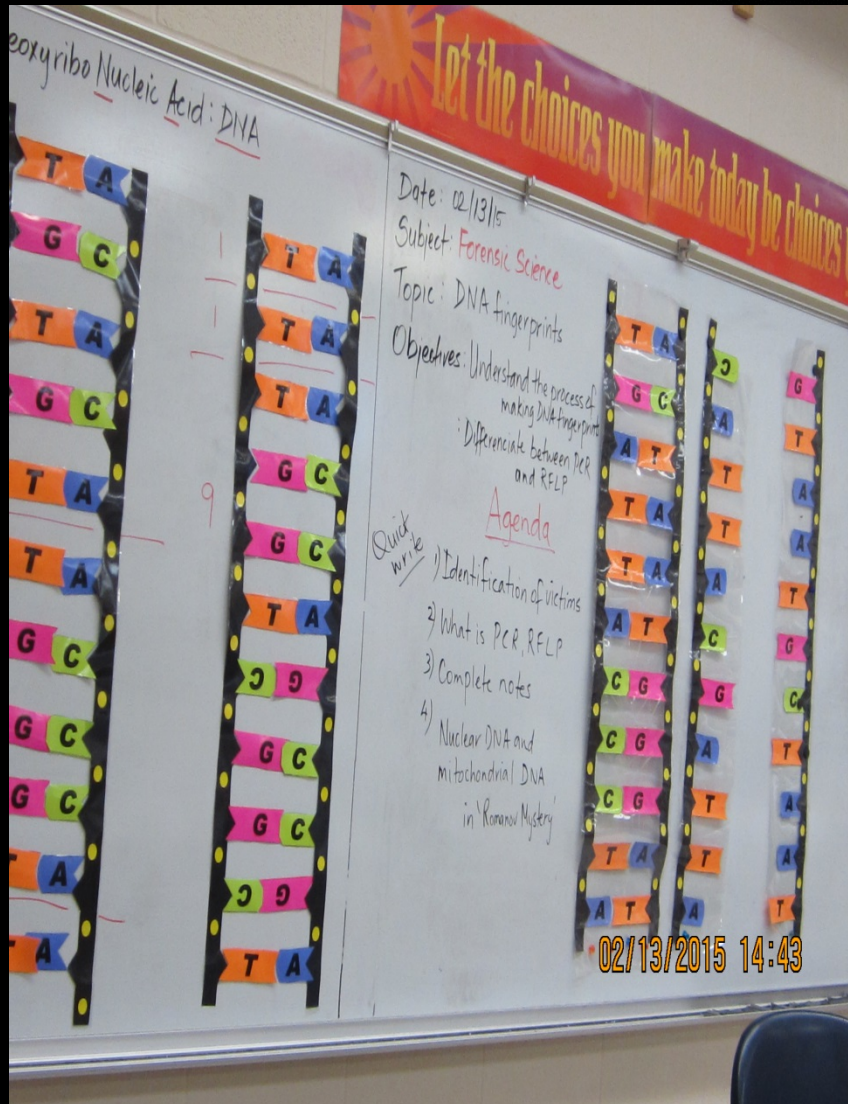 eoxyribo Nucleic Acid: DNA
Let the choices you make today be choices
Date: 02/13/15
Subject: Forensic Science
Topic: DNA fingerprints
Objectives: Understand the process of
making DNA fingerprint
: Differenciate between PCR
and RFLP
Agenda
Quick
write
1) Identification of victims
2) What is PCR, RFLP
3) Complete notes
4) Nuclear DNA and
mitochondrial DNA
in 'Romanov Mystery'
T A
G C
T A
G C
T A
T A
G C
G C
G C
T A
T A
1
1
9
T A
T A
T A
G C
G C
T A
C G
G C
G C
C G
T A
T A
G C
A T
T A
T A
A T
C G
C G
C G
T A
A T
C G
A T
T A
T A
A T
C G
G C
A T
T A
T A
A T
02/13/2015 14:43